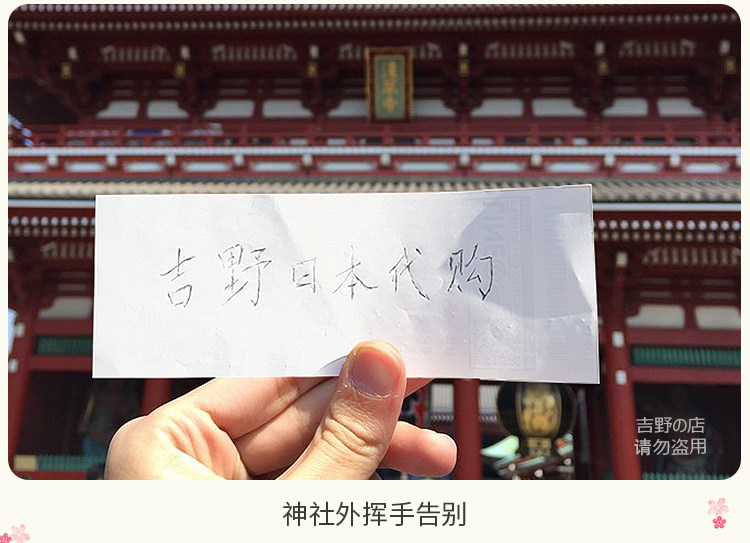 浅草寺
吉野日本代购
吉野の店
请勿盗用
神社外挥手告别